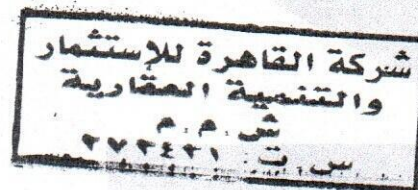 شركة القاهرة للإستثمار
والتنمية العقارية
ش. م. م
س. ت: ٢٧٢٤٢١